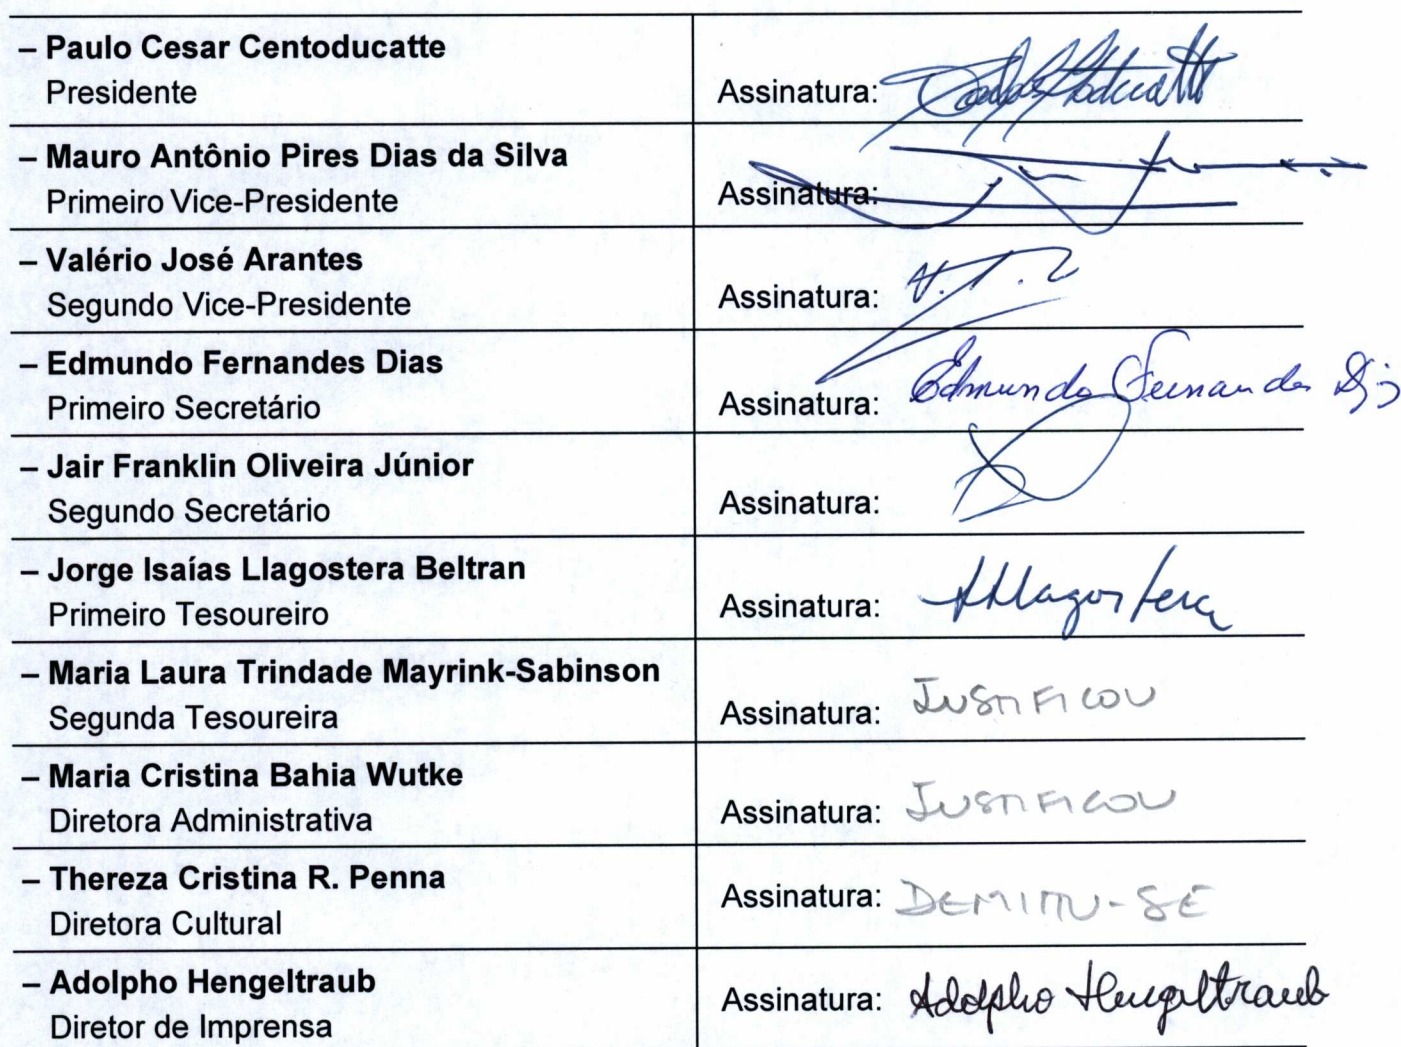 – Paulo Cesar Centoducatte
Presidente
Assinatura:
– Mauro Antônio Pires Dias da Silva
Primeiro Vice-Presidente
Assinatura:
– Valério José Arantes
Segundo Vice-Presidente
Assinatura:
– Edmundo Fernandes Dias
Primeiro Secretário
Assinatura: Edmundo Fernandes Dias
– Jair Franklin Oliveira Júnior
Segundo Secretário
Assinatura:
– Jorge Isaías Llagostera Beltran
Primeiro Tesoureiro
Assinatura: Llagostera
– Maria Laura Trindade Mayrink-Sabinson
Segunda Tesoureira
Assinatura: JUSTIFICOU
– Maria Cristina Bahia Wutke
Diretora Administrativa
Assinatura: JUSTIFICOU
– Thereza Cristina R. Penna
Diretora Cultural
Assinatura: DEMITIU-SE
– Adolpho Hengeltraub
Diretor de Imprensa
Assinatura: Adolpho Hengeltraub